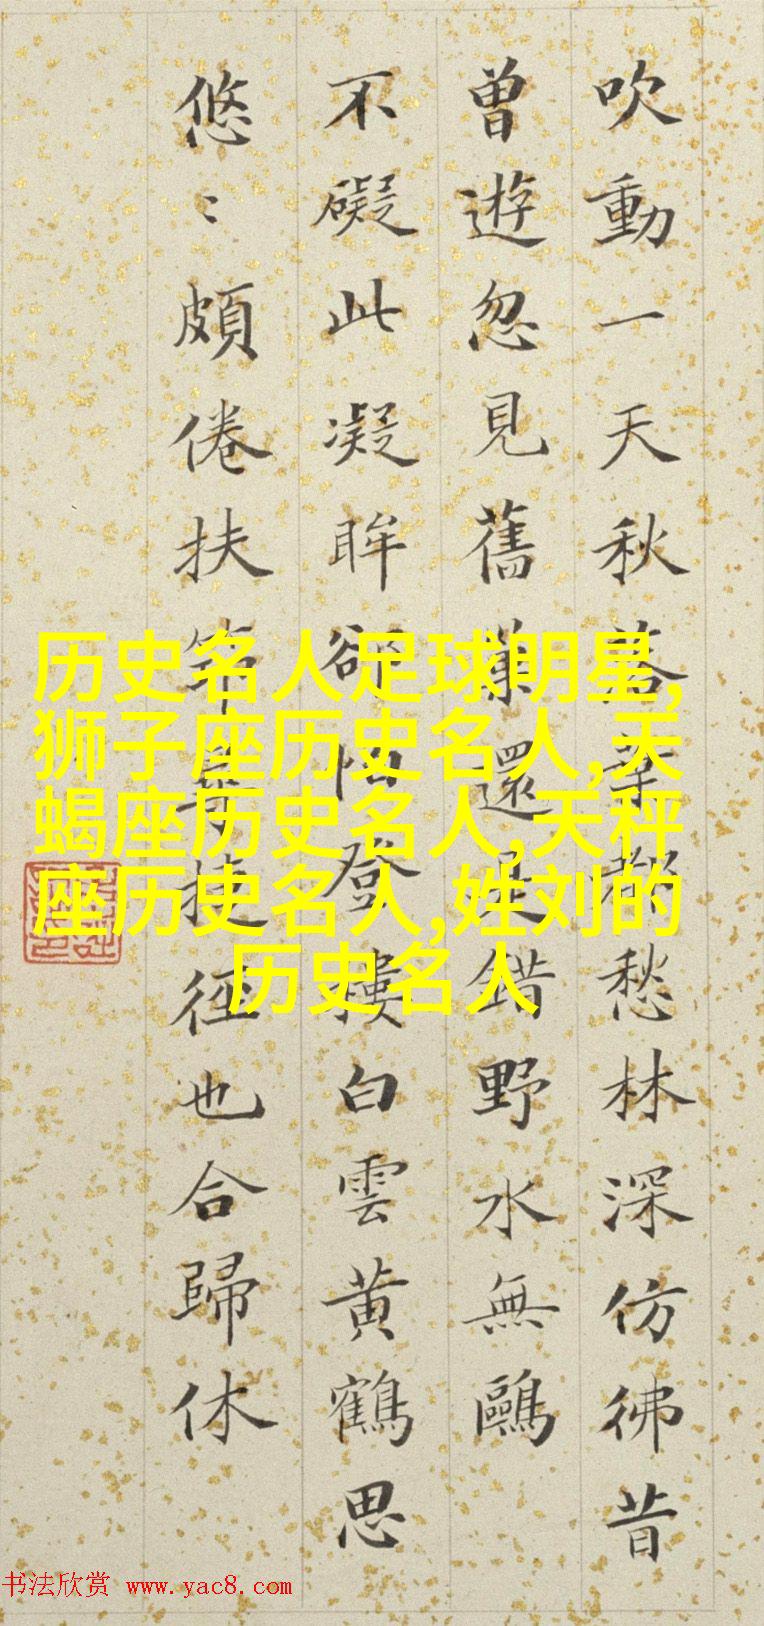 吹動一天秋落葉都愁林深仿彿昔
曾遊忽見舊巢還是錯野水無鷗
不礙此凝眸卻怕登樓白雲黃鶴思
悠〻頗倦扶笻尋捷徑也合歸休
历史名人足球明星,
狮子座历史名人,天
蝎座历史名人,天秤
座历史名人,姓刘的
历史名人
书法欣赏 www.yac8.com